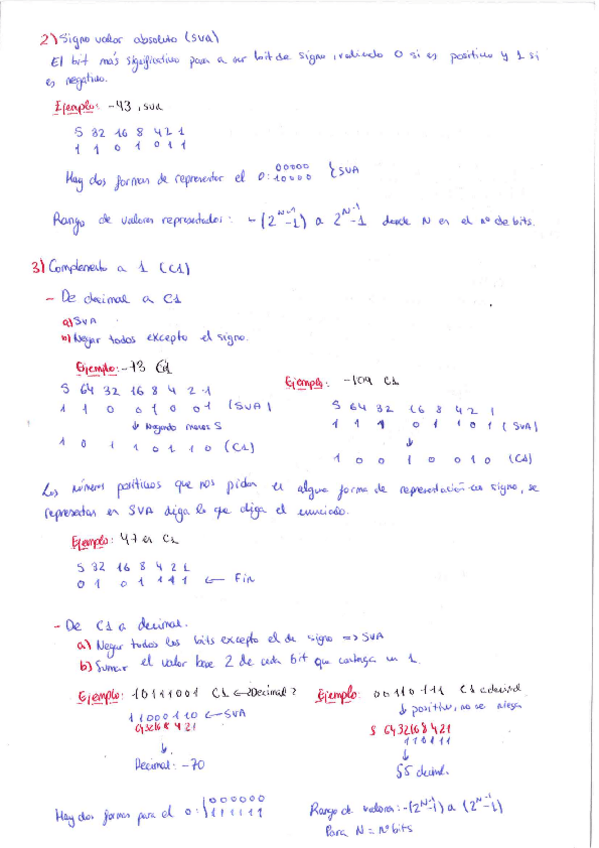 2) Signo valor absoluto (SVA)
El bit más significativo pasa a ser bit de signo, valiendo 0 si es positivo y 1 si
es negativo.
Ejemplo: -43, SVA
S 32 16 8 4 2 1
1 1 0 1 0 1 1
Hay dos formas de representar el 0: 00000 10000 } SVA
Rango de valores representados: -(2^N-1 -1) a 2^N-1 -1 donde N es el nº de bits.
3) Complemento a 1 (C1)
- De decimal a C1
a) SVA
b) Negar todos excepto el signo.
Ejemplo: -73 C1
S 64 32 16 8 4 2 1
1 1 0 0 1 0 0 1 (SVA)
↓ Negando menos S
1 0 1 1 0 1 1 0 (C1)
Ejemplo: -109 C1
S 64 32 16 8 4 2 1
1 1 1 0 1 1 0 1 (SVA)
↓
1 0 0 1 0 0 1 0 (C1)
Los números positivos que nos pidan en alguna forma de representación con signo, se
representan en SVA diga lo que diga el enunciado.
Ejemplo: 47 en C1
S 32 16 8 4 2 1
0 1 0 1 1 1 1 ← Fin
- De C1 a decimal.
a) Negar todos los bits excepto el de signo => SVA
b) Sumar el valor base 2 de cada bit que contenga un 1.
Ejemplo: 10111001 C1 ← Decimal?
11000110 ← SVA
64 32 16 8 4 2 1
↓
Decimal: -70
Ejemplo: 00110111 C1 a decimal
↓ positivo, no se niega
S 64 32 16 8 4 2 1
110111
↓
55 decimal.
Hay dos formas para el 0: { 000000 111111
Rango de valores: -(2^N-1 -1) a (2^N-1 -1)
Para N = nº bits